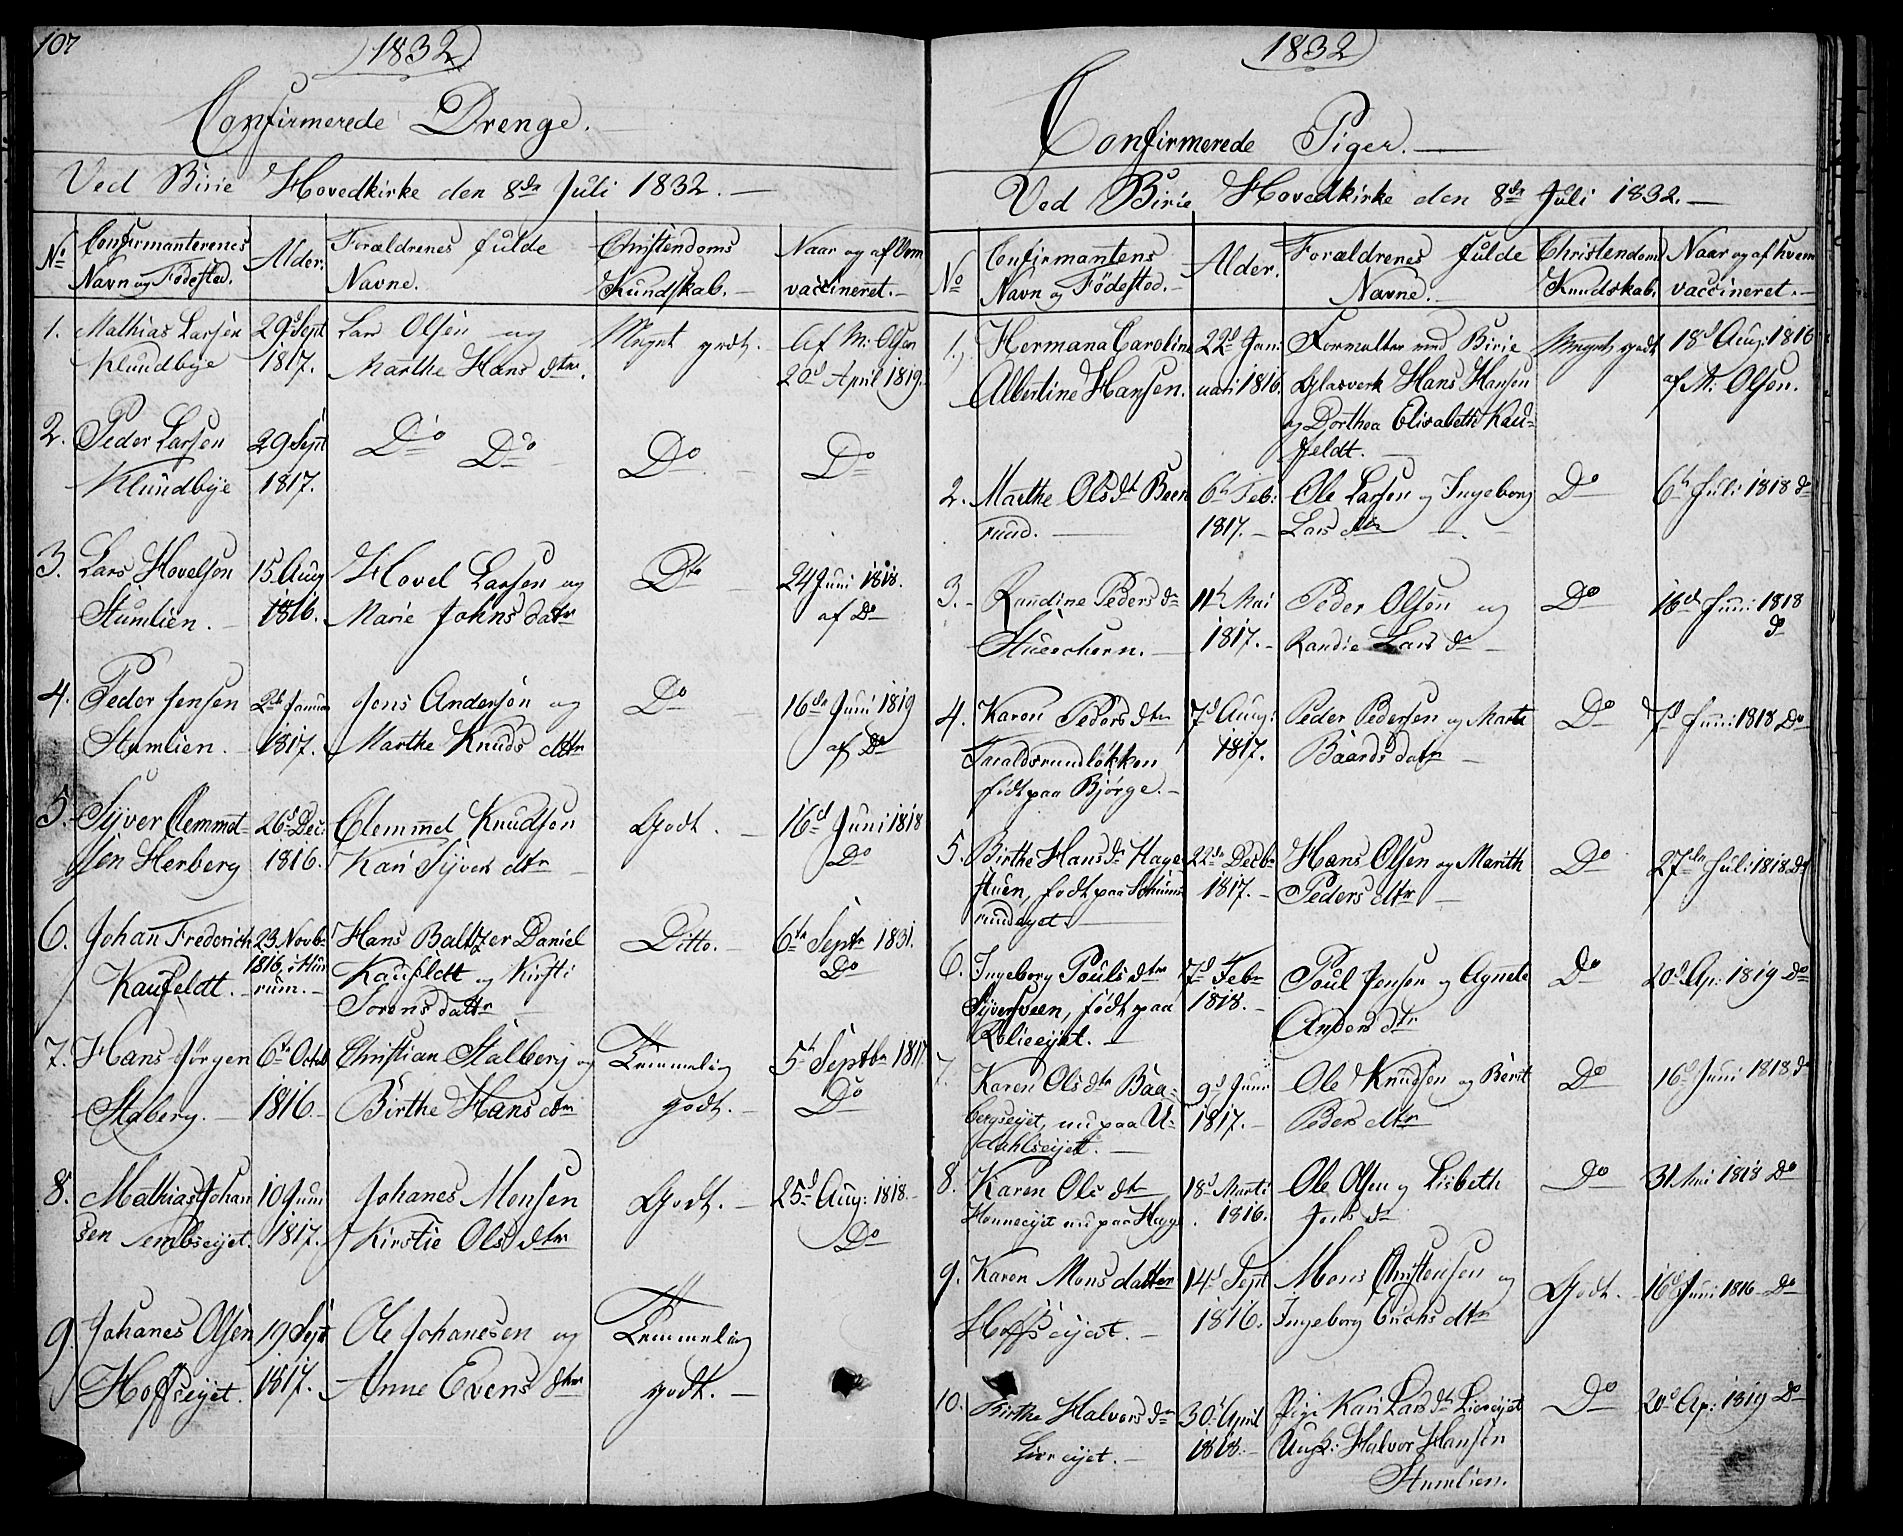 107
1832
Confirmerede Drenge.
Ved Birie Hovedkirke den 8de Juli 1832.
No
Confirmanterenes
Navn og Fødested.
Alder.
Forældrenes fulde
Navne.
Christendoms
Kundskab.
Naar og af Hvem
vaccineret.
1. Mathias Larsen
Klundbye
29d Sept
1817.
Lars Olsen og
Marthe Hans dtr.
Meget godt.
Af M. Olsen
20d April 1819.
2. Peder Larsen
Klundbye
29 Sept
1817.
Do Do
Do
Do
3. Lars Hovelsen
Stumlien.
15 Aug
1816.
Hovel Larsen og
Marie Johns datr
Dto
24 Juni 1818.
af Do
4. Peder Jensen
Stumlien.
2de Januar
1817.
Jens Andersen og
Marthe Knuds dtr
Do
16de Juni 1819
af Do
5. Syver Clemmet-
sen Herberg
26d Dec:
1816.
Clemmet Knudsen
Kari Syvers dtr
Godt.
16d Juni 1818
Do
6. Johan Frederich
Kaufeldt.
23 Novbr
1816, i Hur
rum.
Hans Baltzer Daniel
Kaufeldt og Kirsti
Torens datr
Ditto.
6te Septr 1831.
Do
7. Hans Jørgen
Staberg.
6te Octob
1816.
Christian Stalberg og
Birthe Hans dtr
Temmelig
godt.
5te Septbr 1817
Do
8. Mathias Johan
sen Sembseijet.
10 Juni
1817.
Johanes Monsen
Kirstie Ols dtr
Godt.
25d Aug: 1818.
Do
9. Johanes Olsen
Hoffseijet.
19 Sept
1817.
Ole Johanesen og
Anne Evens dtr
Temmelig
godt.
1832
Confirmerede Piger.
Ved Birie Hovedkirke den 8de Juli 1832.
No
Confirmantens
Navn og Födested.
Alder.
Forældrenes fulde
Navne.
Christendoms
Kundskab.
Naar og af hvem
vaccineret.
1. Hermana Caroline
Albertine Hansen.
22d Jan:
uari 1816.
Formalter ved Birie
Glasverk Hans Hansen
og Dorthea Elisabeth Kau-
feldt.
Meget godt
18d Aug: 1816
af M: Olsen.
2. Marthe Olsdtr Been
rud.
6te Feb:
1817.
Ole Larsen og Ingeborg
Lars dtr
Do
6te Juli 1818 do
3. Randine Peders dr
11te Mai
1817.
Peder Olsen og
Randie Lars dr
Do
16d Juni 1818
do
4. Karen Peders dtr
Taraldsrudlökken
födt paa Bjørge.
7d Aug:
1817.
Peder Pedersen og Marte
Baards datr
Do
7d Juni 1818 Do
5. Birthe Hans dr Hage-
stuen, födt paa
rudeyet.
22de Decbr
1817.
Hans Olsen og Marith
Peders dtr
Do
27de Juli 1818 Do
6. Ingeborg Pouls dtr
Syversveen, födt paa
Roliceijet.
7d Febr
1818.
Poul Jensen og Agnete
Anders dtr
Do
20d Ap: 1819 Do
7. Karen Ols dtr Baa-
bergseijet, nu paa U-
dahlseijet.
9d Juni
1817.
Ole Knudsen og Berit
Peders dtr
Do
16d Juni 1818 do
8. Karen Ols dtr
Honneeijet nu paa Hage
18d Marti
1816.
Ole Olsen og Lisbeth
Jens dr
Do
31 Mai 1818 Do
9. Karen Mons datter
Hoffseijet.
14d Sept
1816.
Mons Christensen og
Ingeborg Erichs dtr
Godt.
16d Juni 1816 Do
10. Birthe Halvors dr
Liereijet.
30d April
1818.
Pige Kari Lars dr Liereijet
Ungk: Halvor Hansen
Stumlien.
Do
20d Ap: 1819 Do